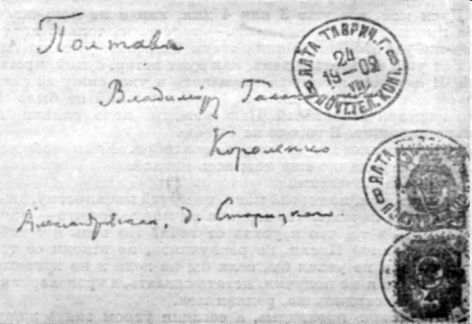 Полтава
Владиміру
Короленко
Александровская, д. Старицкого.
ЯЛТА ТАВРИЧ. Г.
24
19—02
ПОЧТ.ТЕЛ.КОН.
ЯЛТА